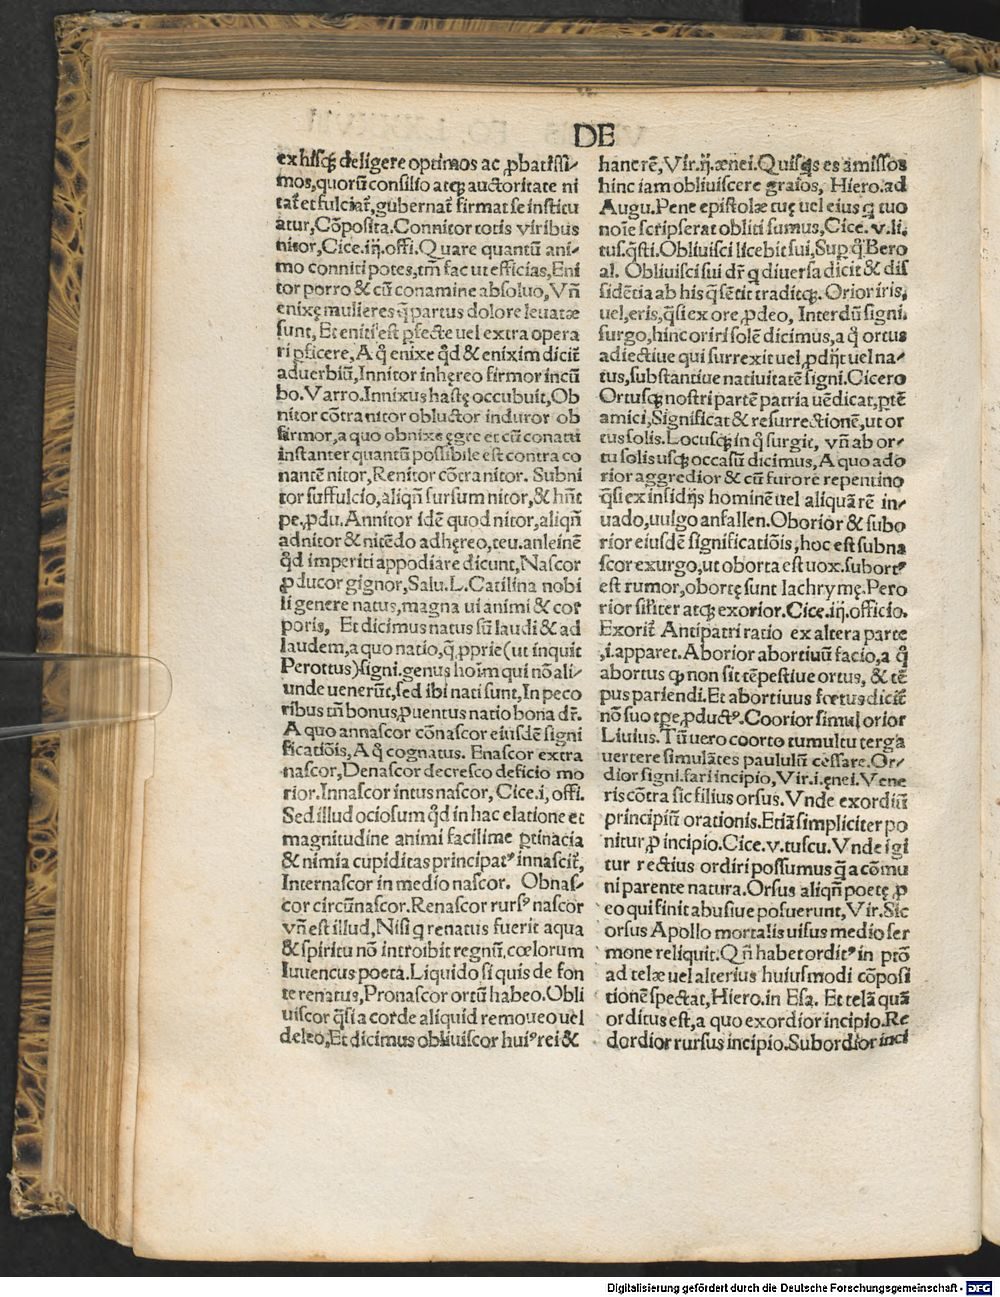 DE
ex hisq̃ deligere optimos ac ꝓbatissi-
mos, quorũ consilio atq̃ auctoritate ni
tat̃ et fulciat̃, gubernat̃ firmat se institu
atur, Cõposita. Connitor totis viribus
nitor, Cice. iij. offi. Quare quantũ ani-
mo conniti potes, tm̃ fac ut efficias, Eni
tor porro & cũ conamine absoluo, Vñ
enixę mulieres q̃ partus dolore leuatæ
sunt, Et eniti est ꝑfecte uel extra opera
ri ꝑficere, A q̃ enixe q̃d & enixim dicit̃
aduerbiũ, Innitor inhęreo firmor incũ
bo. Varro. Innixus hastę occubuit, Ob
nitor cõtra nitor obluctor induror ob
firmor, a quo obnixe ęgre et cũ conatu
instanter quantũ possibile est contra co
nantẽ nitor, Renitor cõtra nitor. Subni
tor suffulcio, aliqñ sursum nitor, & hñt
pe., ꝓdu. Annitor idẽ quod nitor, aliqñ
adnitor & nitẽdo adhęreo, teu. anleinẽ
q̃d imperiti appodiare dicunt, Nascor
ꝓducor gignor, Salu. L. Catilina nobi
li genere natus, magna ui animi & cor
poris, Et dicimus natus sũ laudi & ad
laudem, a quo natio, q̃, ꝓprie (ut inquit
Perottus) signi. genus hoim̃ qui nõ ali-
unde uenerũt, sed ibi nati sunt, In peco
ribus tñ bonus, ꝓuentus natio bona dr̃.
A quo annascor cõnascor eiusdẽ signi
ficatiõis, A q̃ cognatus. Enascor extra
nascor, Denascor decresco deficio mo
rior. Innascor intus nascor, Cice. i, offi.
Sed illud ociosum q̃d in hac elatione et
magnitudine animi facilime ꝑtinacia
& nimia cupiditas principatꝰ innascit̃,
Internascor in medio nascor. Obnas-
cor circũnascor. Renascor rursꝰ nascor
vñ est illud, Nisi q renatus fuerit aqua
& spiritu nõ introibit regnũ, cœlorum
Iuuencus poeta. Liquido si quis de fon
te renatus, Pronascor ortũ habeo. Obli
uiscor q̃si a corde aliquid remoueo uel
deleo, Et dicimus obliuiscor huiꝰ rei &
hanc rẽ, Vir. ij. ænei. Quisq̃s es amissos
hinc iam obliuiscere graios, Hiero. ad
Augu. Pene epistolæ tuę uel eius q tuo
noĩe scripserat obliti sumus, Cice. v. li.
tus. q̃sti. Obliuisci licebit sui, Sup q̃ Bero
al. Obliuisci sui dr̃ q diuersa dicit & dis
sidẽtia ab his q̃ sẽtit traditq̃. Orior iris,
uel, eris, q̃si ex ore, ꝓdeo, Interdũ signi.
surgo, hinc oriri solẽ dicimus, a q̃ ortus
adiectiue qui surrexit uel, ꝓdijt uel na-
tus, substantiue natiuitatẽ signi. Cicero
Ortusq̃ nostri partẽ patria uẽdicat, ꝑtẽ
amici, Significat & resurrectionẽ, ut or
tus solis. Locusq̃ in q̃ surgit, vñ ab or-
tu solis usq̃ occasũ dicimus, A quo ado
rior aggredior & cũ furore repentino
q̃si ex insidijs hominẽ uel aliquã rẽ in-
uado, uulgo anfallen. Oborior & subo
rior eiusdẽ significatiõis, hoc est subna
scor exurgo, ut oborta est uox. subortꝰ
est rumor, obortę sunt lachrymę. Pero
rior sisiter atq̃ exorior. Cice. iij. officio.
Exorit̃ Antipatri ratio ex altera parte
,i. apparet. Aborior abortiuũ facio, a q̃
abortus ꝙ non sit tẽpestiue ortus, & tẽ
pus pariendi. Et abortiuus fœtus dicit̃
nõ suo tpe, ꝓductꝰ. Coorior simul orior
Liuius. Tũ uero coorto tumultu terga
uertere simulãtes paululũ cessare. Or-
dior signi. fari incipio, Vir. i. ęnei. Vene
ris cõtra sic filius orsus. Vnde exordiũ
principiũ orationis. Etiã simpliciter po
nitur, ꝓ incipio. Cice. v. tuscu. Vnde igi
tur rectius ordiri possumus q̃ a cõmu
ni parente natura. Orsus aliqñ poetę ꝓ
eo qui finit abusiue posuerunt, Vir. Sic
orsus Apollo mortalis uisus medio ser
mone reliquit. Qñ habet orditꝰ in ptõ
ad telæ uel alterius huiusmodi cõposi
tionẽ spectat, Hiero. in Esa. Et telã quã
orditus est, a quo exordior incipio. Re
dordior rursus incipio. Subordior inci
Digitalisierung gefördert durch die Deutsche Forschungsgemeinschaft - DFG